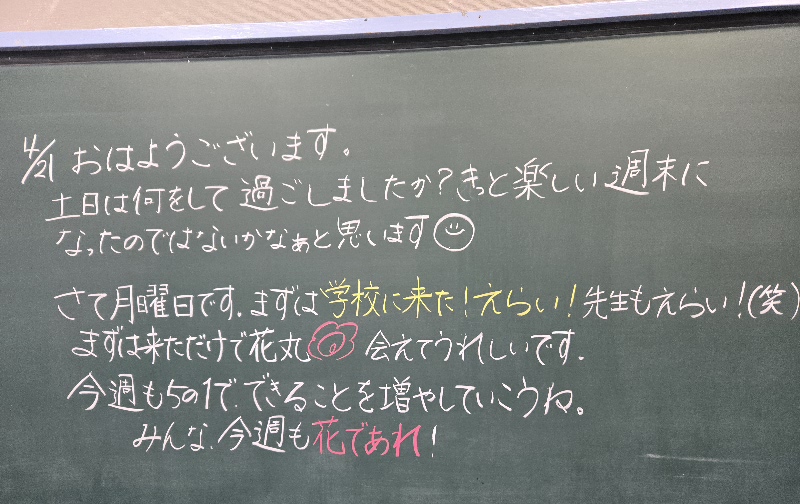 4/21 おはようございます。
土日は何をして過ごしましたか？きっと楽しい週末に
なったのではないかなぁと思います
さて月曜日です。まずは学校に来た！えらい！先生もえらい！(笑)
まずは来ただけで花丸 会えてうれしいです。
今週も5の1で、できることを増やしていこうね。
みんな、今週も花であれ！